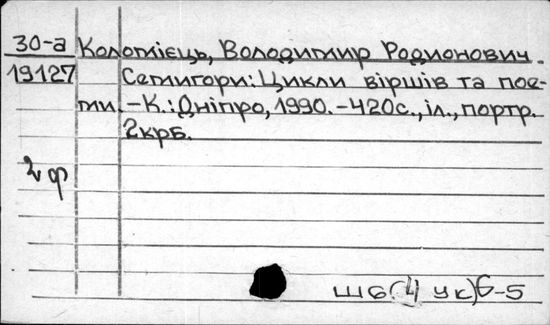 30-а Коломієць, Володимир Родионович.
19127 Семигори: Цикли віршів та пое-
ми. – К.: Дніпро, 1990. – 420с., іл., портр.
2крб.
2 ф
Ш6(4 Ук)6-5